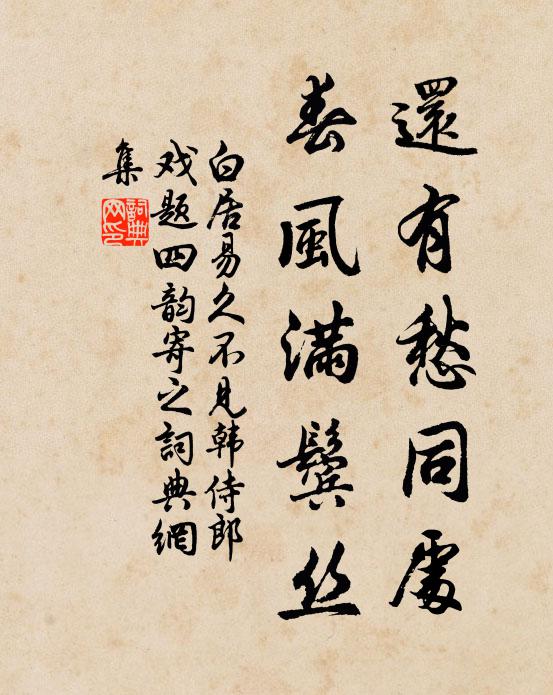 還有愁同處
春風滿鬢丝
白居易久不見韩侍郎
戏题四韵寄之詞典網
集
詞典
网印